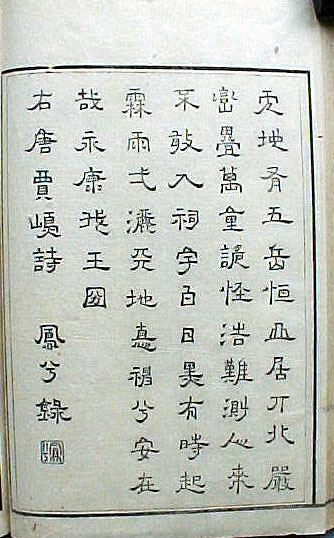 天地有五岳恒岳居其北嚴
巒疊萬重詭怪浩難測人来
不敢入祠宇白日黑有時起
霖雨弌灑天地德禔兮安在
哉永康我王國
右唐賈島詩 鳳兮錄